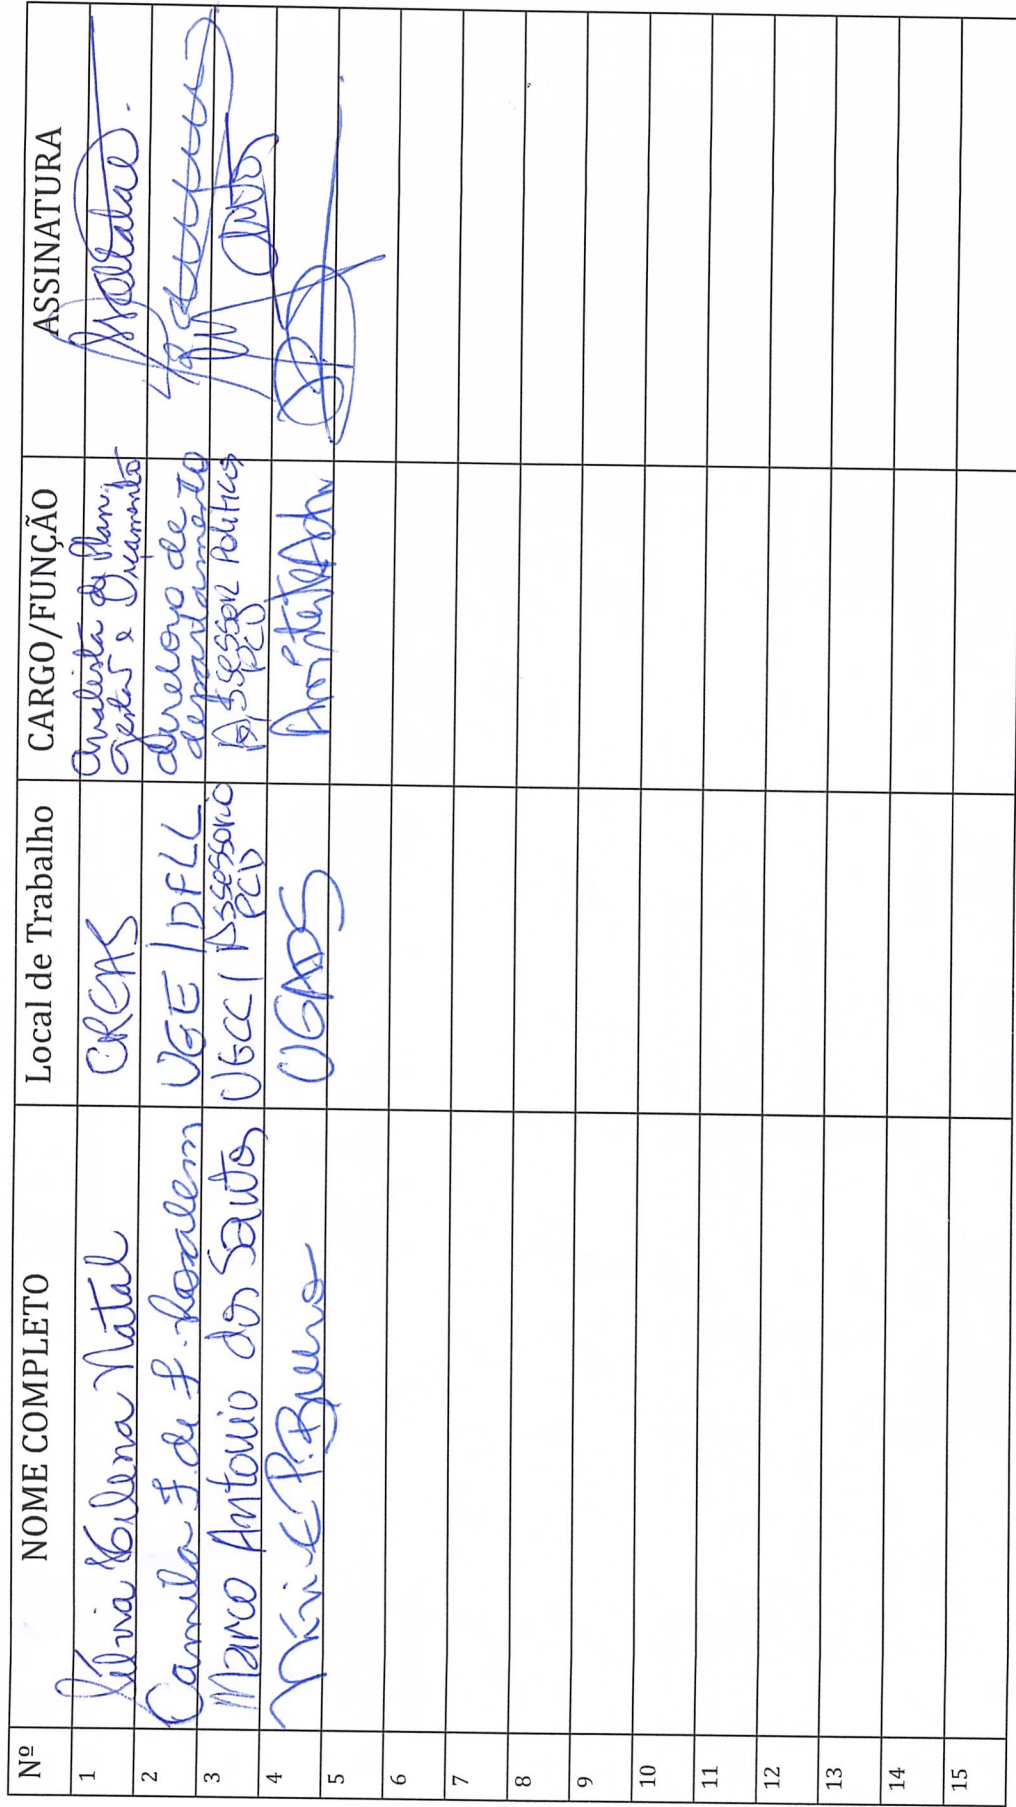 Nº NOME COMPLETO Local de Trabalho CARGO/FUNÇÃO ASSINATURA
1 Sílvia Helena Natal CREAS Analista de Plan. Gestão e Orçamento
2 Camila F. de F. Rosalem UGE / DFLL diretora de departamento
3 Marco Antonio dos Santos UGCC / Assessoria PCD Assessor Políticas PCD Santos
4 P. Bueno UGADS
5
6
7
8
9
10
11
12
13
14
15